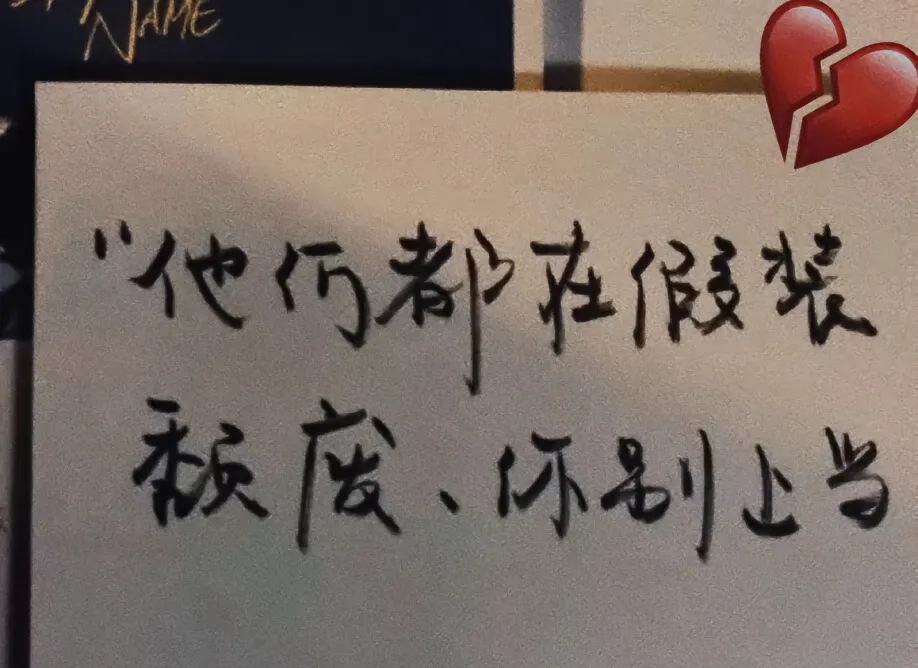 NAME
"他们都在假装
颓废、你别上当